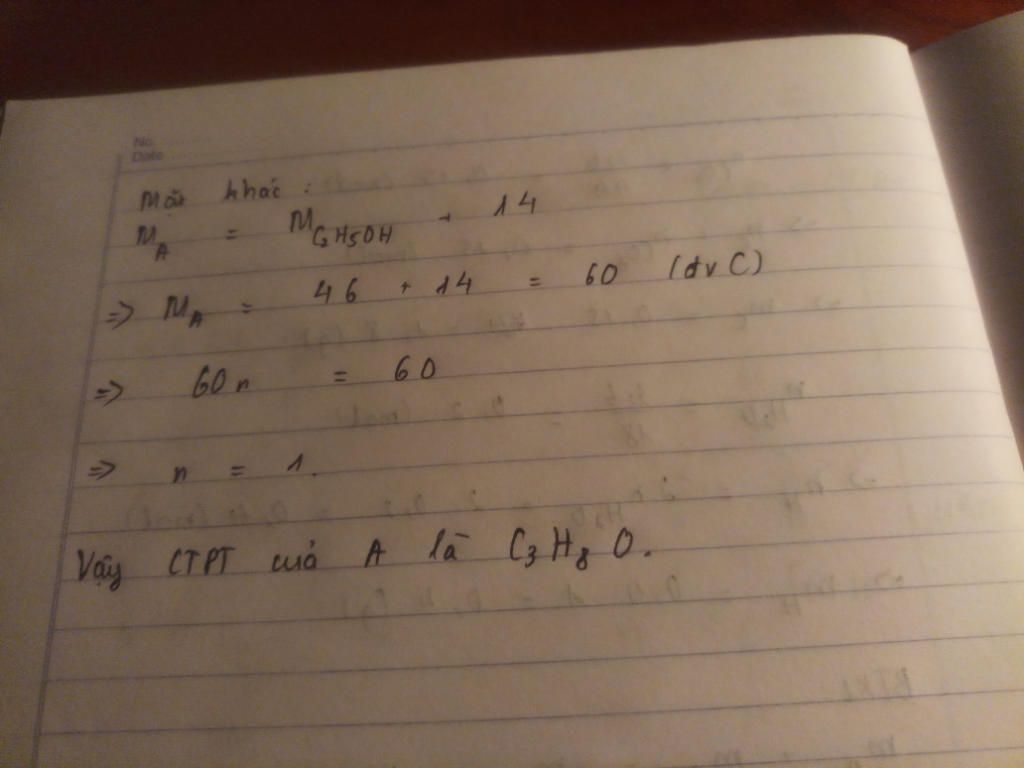 No.
Date
Mặt khác :
M_A = M_C2H5OH + 14
=> M_A = 46 + 14 = 60 (đvC)
=> 60n = 60
=> n = 1.
Vậy CTPT của A là C3H8O.